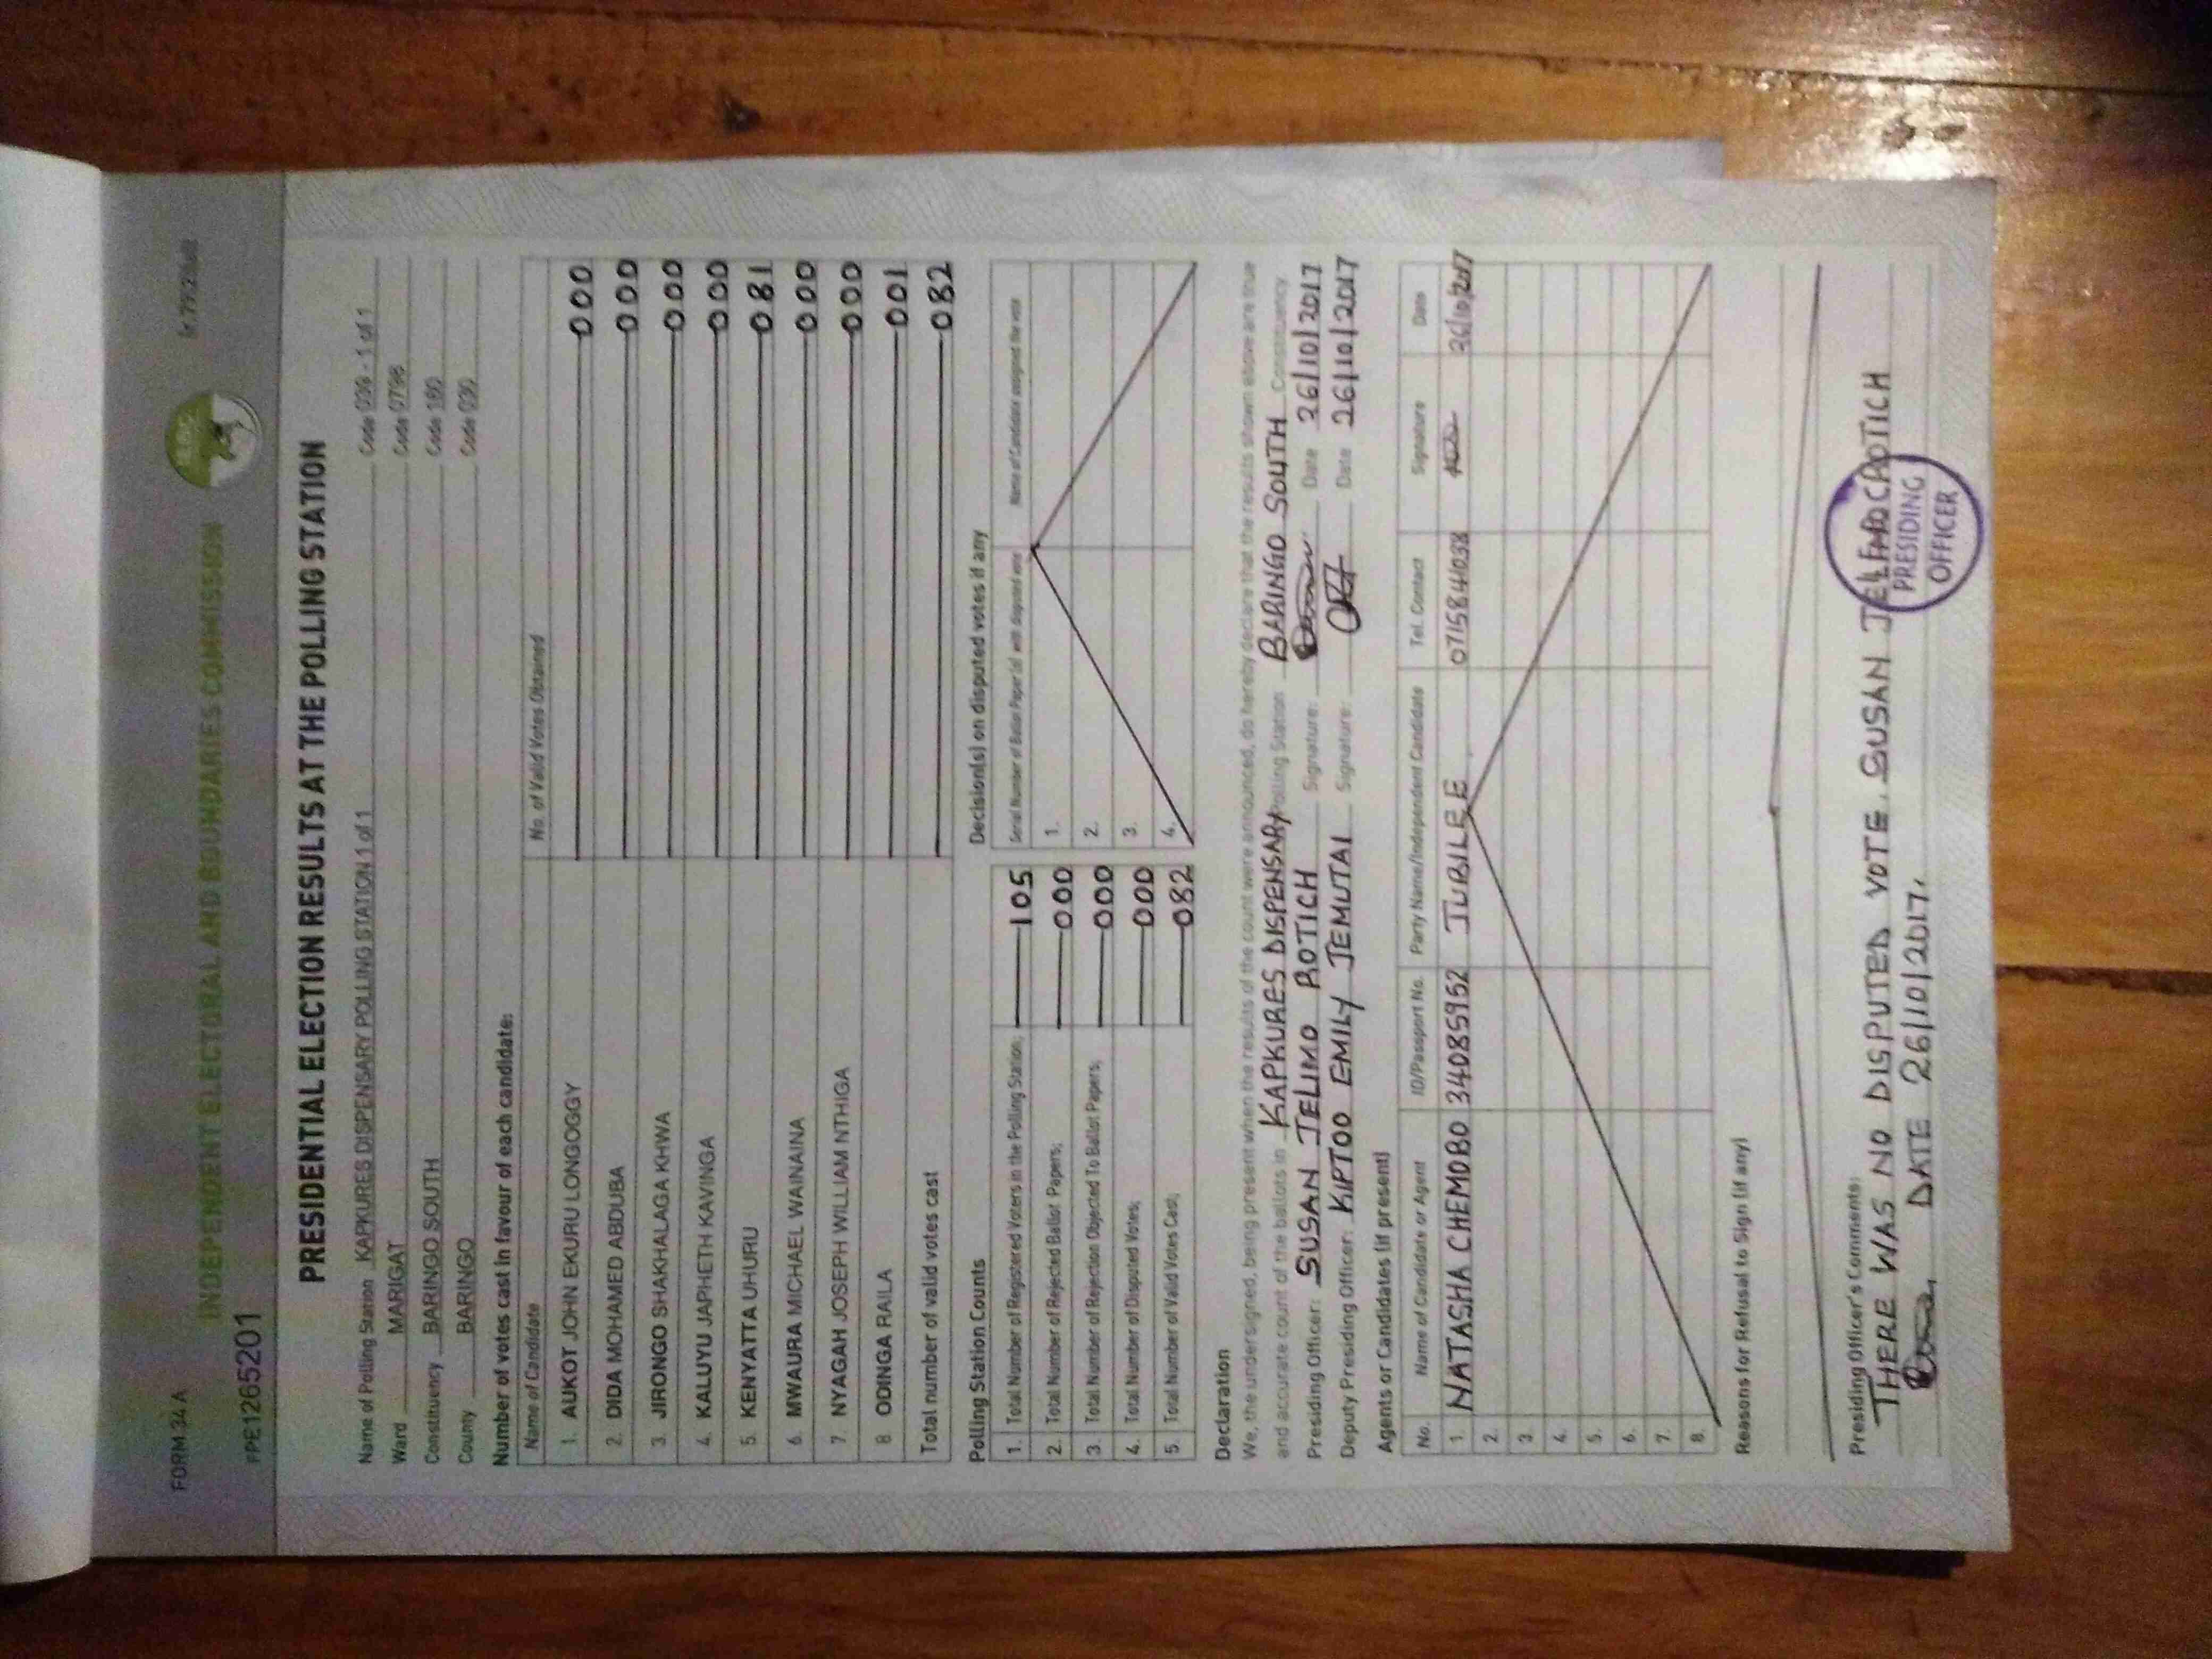 FORM 34 A
INDEPENDENT ELECTORAL AND BOUNDARIES COMMISSION
PPE1265201
PRESIDENTIAL ELECTION RESULTS AT THE POLLING STATION
Name of Polling Station KAPKURES DISPENSARY POLLING STATION 1 of 1 Code 039 - 1 of 1
Ward MARIGAT Code 0798
Constituency BARINGO SOUTH Code 160
County BARINGO Code 030
Number of votes cast in favour of each candidate:
Name of Candidate No. of Valid Votes Obtained
1. AUKOT JOHN EKURU LONGOGGY 000
2. DIDA MOHAMED ABDUBA 000
3. JIRONGO SHAKHALAGA KHWA 000
4. KALUYU JAPHETH KAVINGA 000
5. KENYATTA UHURU 081
6. MWAURA MICHAEL WAINAINA 000
7. NYAGAH JOSEPH WILLIAM NTHIGA 000
8 ODINGA RAILA 001
Total number of valid votes cast 082
Polling Station Counts
1. Total Number of Registered Voters in the Polling Station; 105
2. Total Number of Rejected Ballot Papers; 000
3. Total Number of Rejection Objected To Ballot Papers; 000
4. Total Number of Disputed Votes; 000
5. Total Number of Valid Votes Cast; 082
Decision(s) on disputed votes if any
Serial Number of Ballot Paper (s) with disputed vote Name of Candidate assigned the vote
1.
2.
3.
4.
Declaration
We, the undersigned, being present when the results of the count were announced, do hereby declare that the results shown above are true
and accurate count of the ballots in KAPKURES DISPENSARY Polling Station BARINGO SOUTH Constituency
Presiding Officer: SUSAN TELIMO ROTICH Signature: Date 26/10/2017
Deputy Presiding Officer: KIPTOO EMILY JEMUTAI Signature: Date 26/10/2017
Agents or Candidates (if present)
No. Name of Candidate or Agent ID/Passport No. Party Name/Independent Candidate Tel. Contact Signature Date
1. NATASHA CHEMOBO 34085952 JUBILEE 0715841038 26/10/2017
2.
3
4.
5.
6.
7.
8.
Reasons for Refusal to Sign (if any)
Presiding Officer's Comments:
THERE WAS NO DISPUTED VOTE. SUSAN ROTICH
DATE 26/10/2017.
PRESIDING
OFFICER